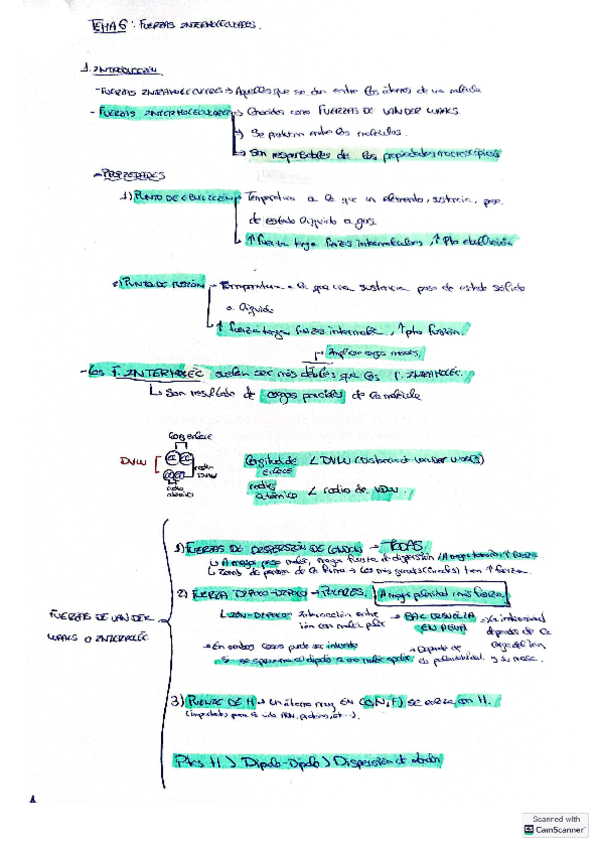 TEMA 6: FUERZAS INTERMOLECULARES.
1. INTRODUCCIÓN
- FUERZAS INTRAMOLECULARES → Aquellas que se dan entre los átomos de una molécula
- FUERZAS INTERMOLECULARES → Conocidas como FUERZAS DE VAN DER WAALS.
→ Se producen entre las moléculas.
→ Son responsables de las propiedades macroscópicas
- PROPIEDADES
1) PUNTO DE EBULLICIÓN → Temperatura a la que un elemento, sustancia, pasa
de estado líquido a gas.
→ ↑ fuerza tenga fuerzas intermoleculares, ↑ Pto ebullición
2) PUNTO DE FUSIÓN → Temperatura a la que una sustancia pasa de estado sólido
a líquido
↑ fuerza tengan fuerzas intermolec, ↑ pto fusión.
→ Implican cargas menores.
- Las F. INTERMOLEC suelen ser más débiles que las F. INTRAMOLEC.
↳ Son resultado de cargas parciales de la molécula
long enlace
DVW
radio
atómico
Longitud de enlace < DVW (Distancia de van der Waals)
radio atómico < radio de VDW.
FUERZAS DE VAN DER
WAALS O INTERMOLEC
1) FUERZAS DE DISPERSIÓN DE LONDON → TODAS
↳ A mayor peso molec, mayor fuerza de dispersión
2) FUERZA DIPOLO-DIPOLO → POLARES. A mayor polaridad más fuerza
↳ ION-DIPOLO: Interacción entre
ión con molec polar → BASE DISOLUCIÓN
EN AGUA
→ La intensidad
depende de la
carga del ion
y su masa.
→ En ambos casos puede ser inducido
3) PUENTE DE H → Un átomo muy EN (O, N, F) se enlaza con H.
Ptes H > Dipolo-Dipolo > Dispersión de london
1
Scanned with
CamScanner